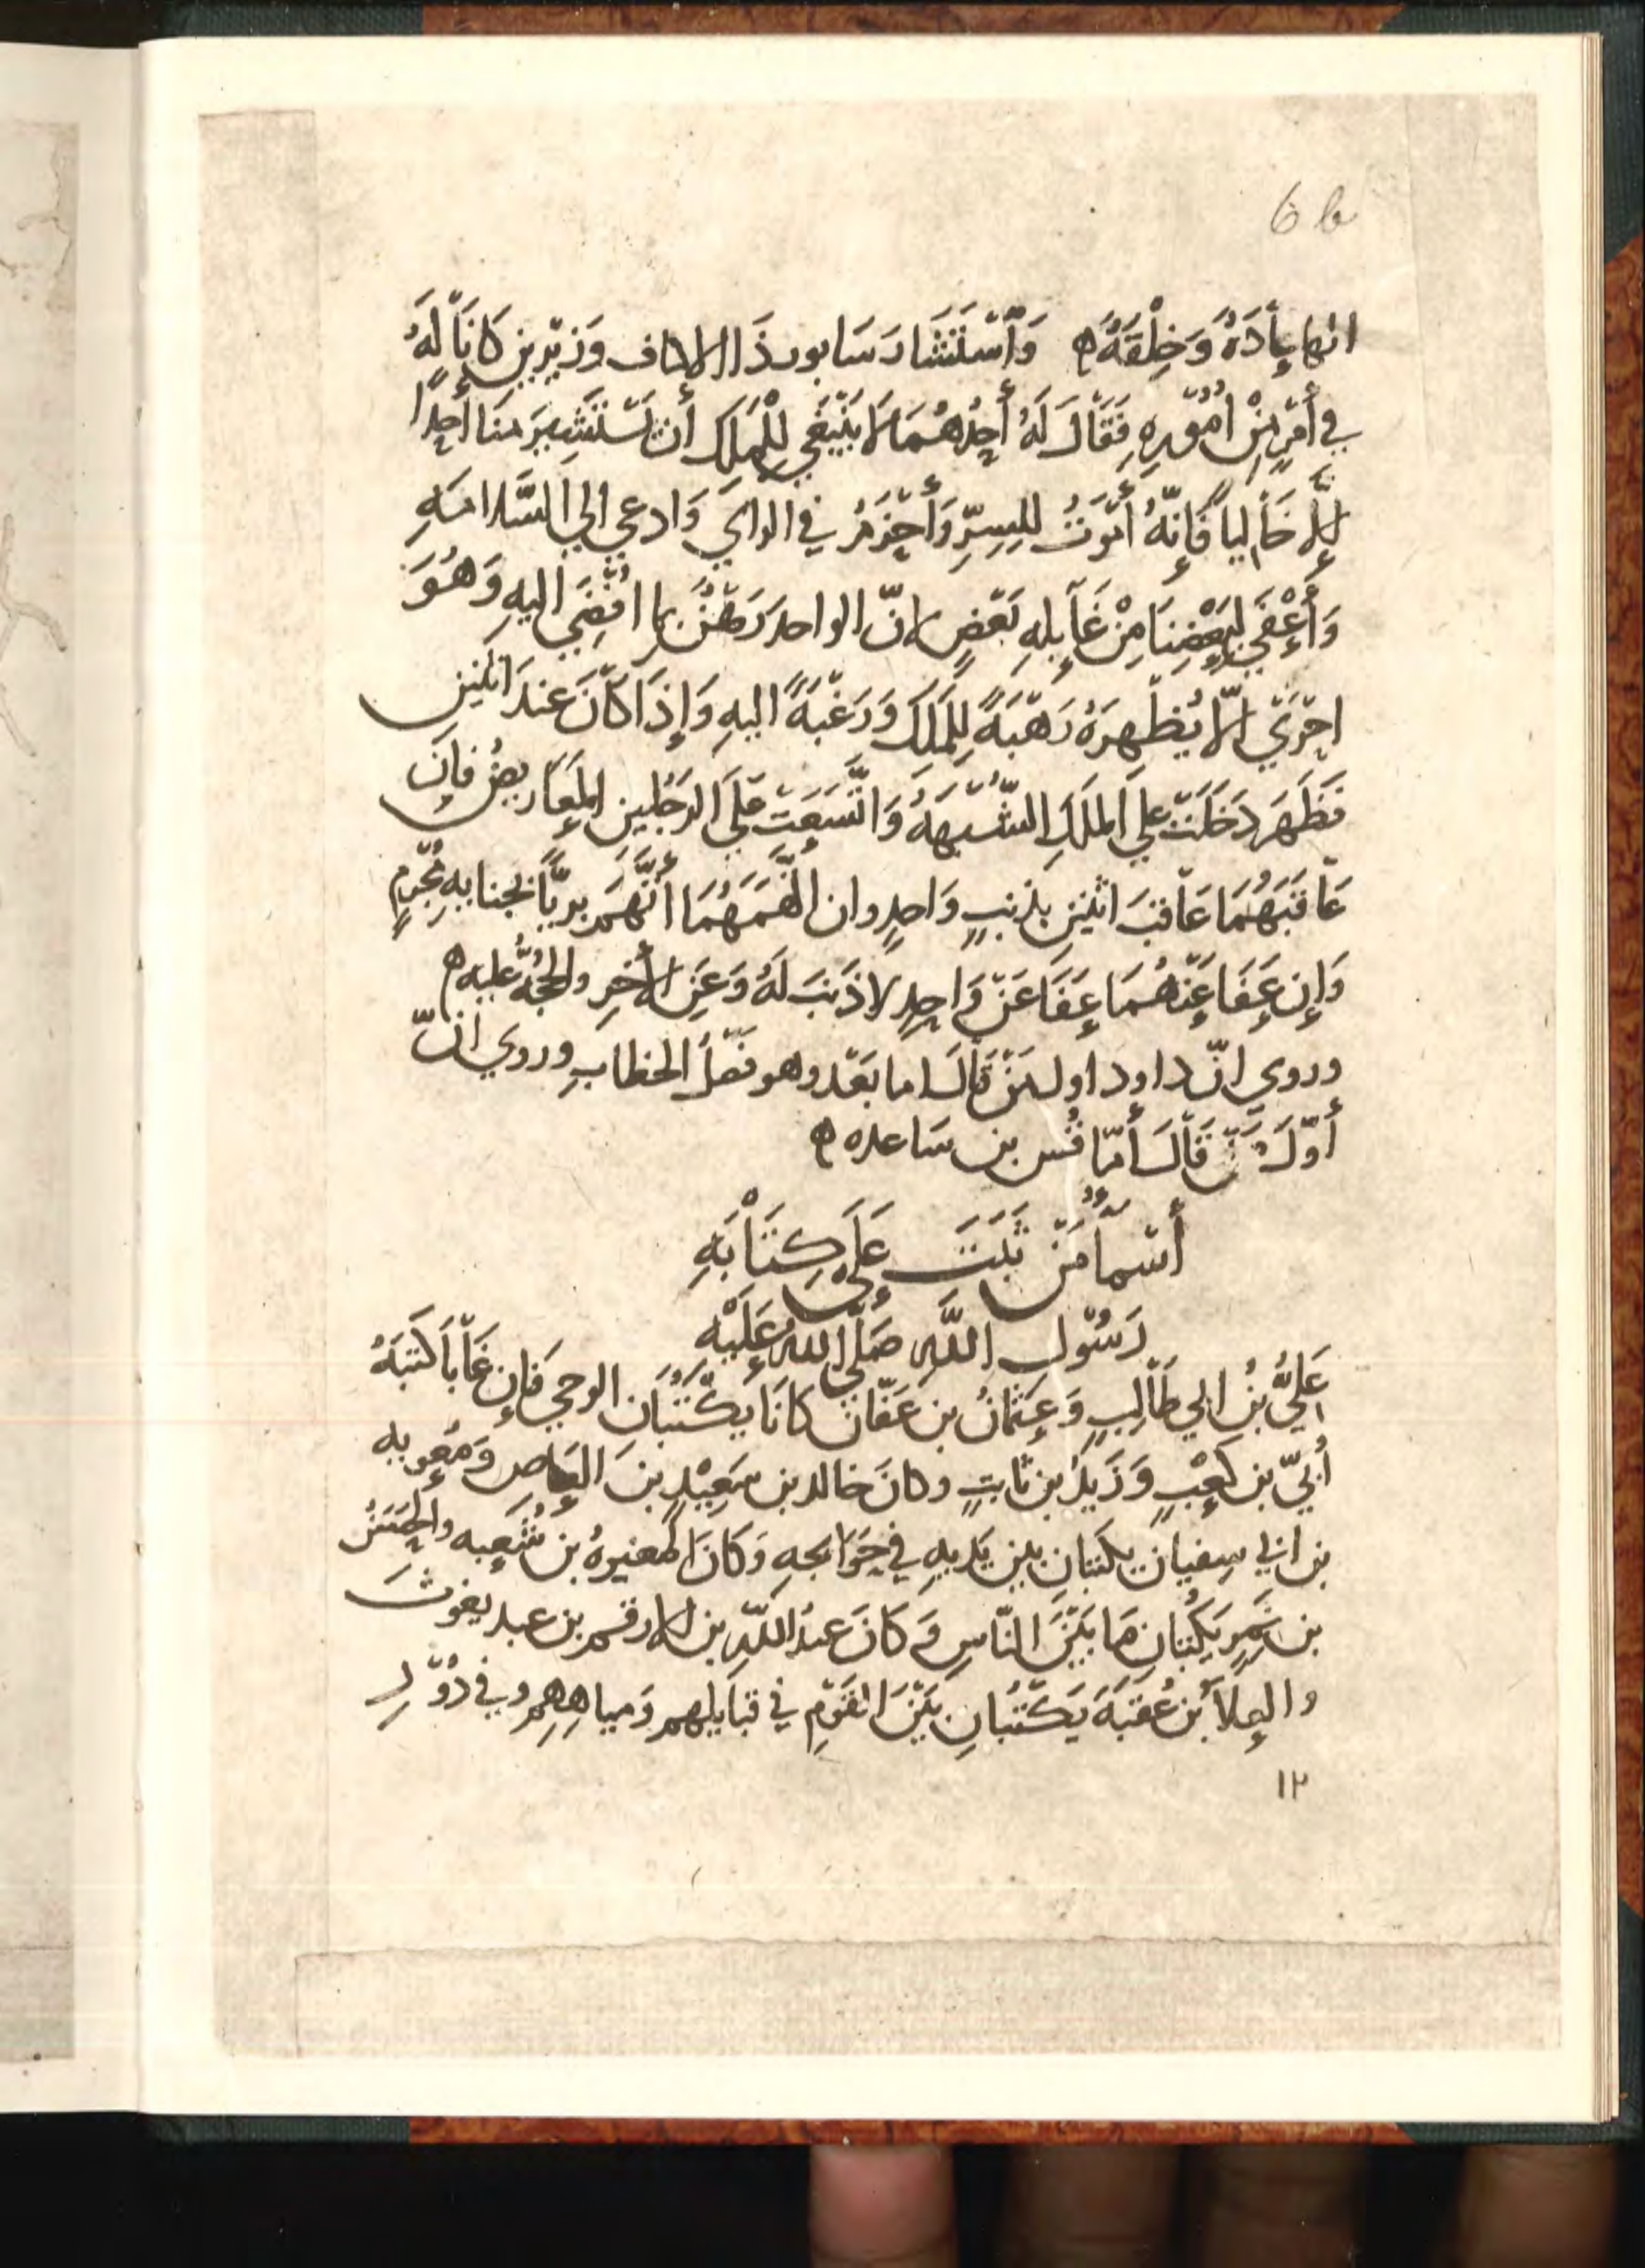 6 b
انها بادة وخلقه ه وَاسْتَشَارَ سَابور ذَا الاكتاف وَزِيرين كَانَا لَهُ
في أَمْرٍ مِنْ أُمُوْرِهِ فَقَالَ لَهُ أَحِدُهُمَا لَا يَنْبَغي لِلْمَلِكِ أن يَسْتَشِيرَ مِنَا أحِدًا
إلَّا خَالياً فَإِنّهُ أَمْوَتُ للسِرِّ وَأَحْزَمُ في الراي وَادعي الي السَّلامَهِ
وَأعْفَي لبَعْضِنَا مِنْ غَآيلهِ بَعْضٍ لانّ الواحد رَهْنٌ بما افْضِيَ اليهِ وَهُوَ
احْرَي الّا يُظْهِرَهُ رَهْبَةً لِلمَلِكِ وَرَغْبَةً اليهِ وَإِذَا كَانَ عندَ اثنين
فَظَهَرَ دَخَلَتْ علي المَلِكِ الشُّبْهَةُ وَاتَّسَعَتْ عَلَي الرَجُلين المعَاريضُ فإن
عَاقَبَهُمَا عَاقبَ اثنين بذنبٍ وَاحدٍ وان اتَّهَمَهُمَا أتَّهَمَ بريّاً بجنايهِ مُجْرِمٍ
وَإِن عَفَا عَنْهُمَا عَفَا عَنْ وَاحِدٍ لا ذَنبَ لَهُ وَعَنِ الأخرِ والحجُّة عليه ه
وروي انّ داود اول مَنْ قَالَ اما بَعْد وهو فَصْلُ الخطابِ وروي انّ
أَوّلَ مَنْ قَالَ أَمّا قُس بن سَاعده ه
أَسْمآءُ مَنْ ثَبَتَ عَلَى كِتَابَهِ
رَسُوْلِ اللَّهِ صَلّي اللهُ عَلَيْهِ
عَلِيُّ بْنُ ابي طَالِبٍ وَعُثمَانُ بن عَفّان كَانَا يَكْتُبَان الوحي فَإِن غَابَا كَتَبَهُ
أُبَيّ بن كَعْبٍ وَزَيدُ بن ثابتٍ وكانَ خالد بن سَعِيْدِ بنَ العَاص وَمُعويه
بن ابي سفيان يكتبانِ بين يَدَيهِ في حَوَايجهِ وَكَانَ المغيرهُ بن شُعبه والحُصَينُ
بن نُمَيرٍ يَكْتُبَانِ مَا بَيْنَ النّاسِ وَ كَانَ عبدُ اللّهِ بن الارقم بن عبد يغوثَ
والعلآ بن عُقبَة يَكْتُبَانِ بَيْنَ القَوْمِ في قبَايلهم وَمياهِهِم وفي دُوْرِ
١٢